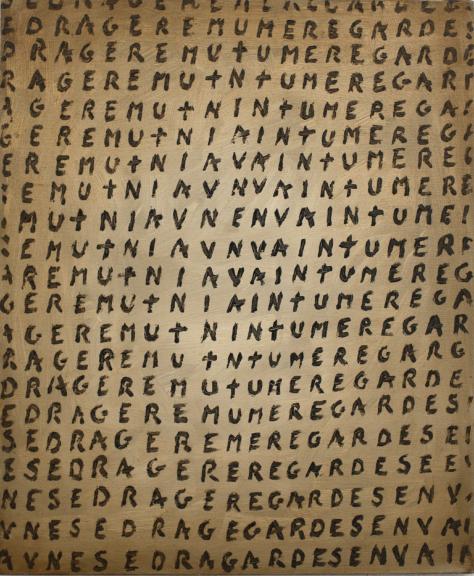 EDRAGEREMUMEREGARDES
DRAGEREMUtUMEREGARDE
RAGEREMUtNtUMEREGAR
AGEREMUtNINtUMEREGA
GEREMUtNIAINtUMEREG
EREMUtNIAVAINtUMEREG
EMUtNIAVNVAINtUMERE
MUtNIAVNENVAINtUME
EMUtNIAVNVAINtUMER
REMUtNIAVAINtUMEREG
GEREMUtNIAINtUMEREGA
AGEREMUtNINtUMEREGAR
RAGEREMUtNtUMEREGARG
DRAGEREMUtUMEREGARDE
EDRAGEREMUMEREGARDES
SEDRAGEREMEREGARDESE
ESEDRAGEREREGARDESEE
NESEDRAGEREGARDESENV
VNESEDRAGEGARDESENVA
AVNESEDRAGARDESENVAI